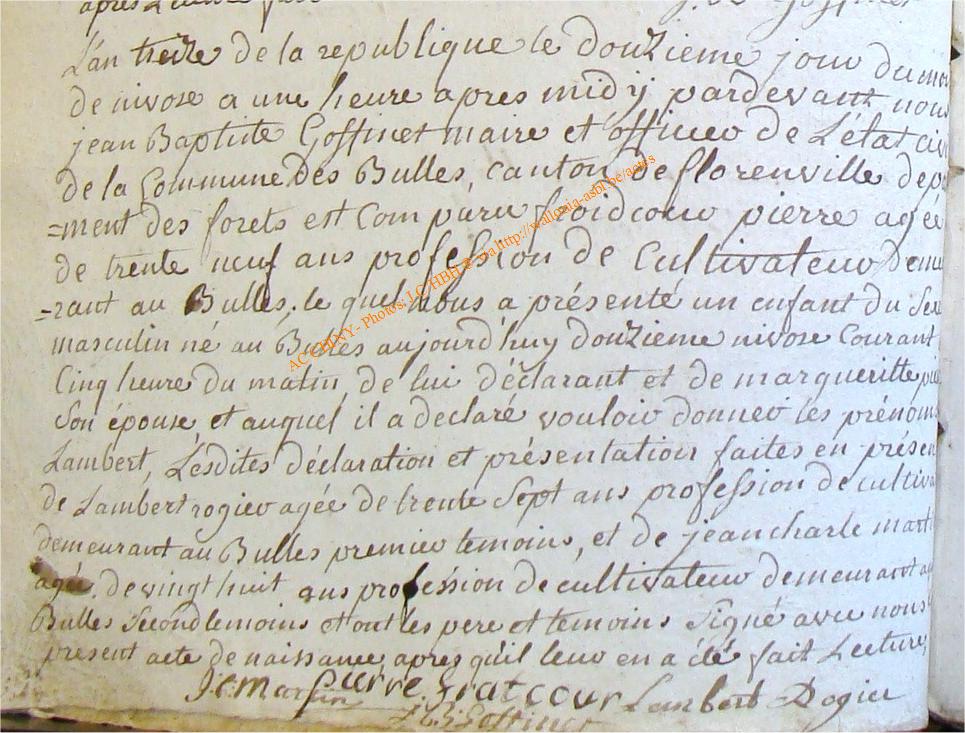 après Lecture
L'an treize de la republique le douzieme jour du mois
de nivose a une heure apres midÿ pardevant nous
jean Baptiste Goffinet maire et officier de L'état civ
de la Commune des Bulles, canton de florenville dep
=ment des forets est Comparu froidcour pierre agée
de trente neuf ans profession de Cultivateur deme
=rant au Bulles, le quel nous a présenté un enfant du Sex
masculin né au Bulles aujourd'huy douzieme nivose Courant
Cinq heure du matin, de lui déclarant et de margueritte
Son épouse, et auquel il a declaré vouloir donner les prénoms
Lambert, Lesdites déclaration et présentation faites en présen
de Lambert rogier agée de trente Sept ans profession de cultiva
demeurant au Bulles premier temoins, et de jean charle marti
agée de vingt huit ans profession de cultivateur demeurant au
Bulles Second temoins et ont les pere et temoins Signé avec nous
present acte de naissance, apres qu'il leur en a été fait Lecture,
J. C. Martin pierre fratcour Lambert Rogier
J. B. Goffinet
AC CHINY - Photos: J.C. HBH © via http://wallonia-asbl.be/actes